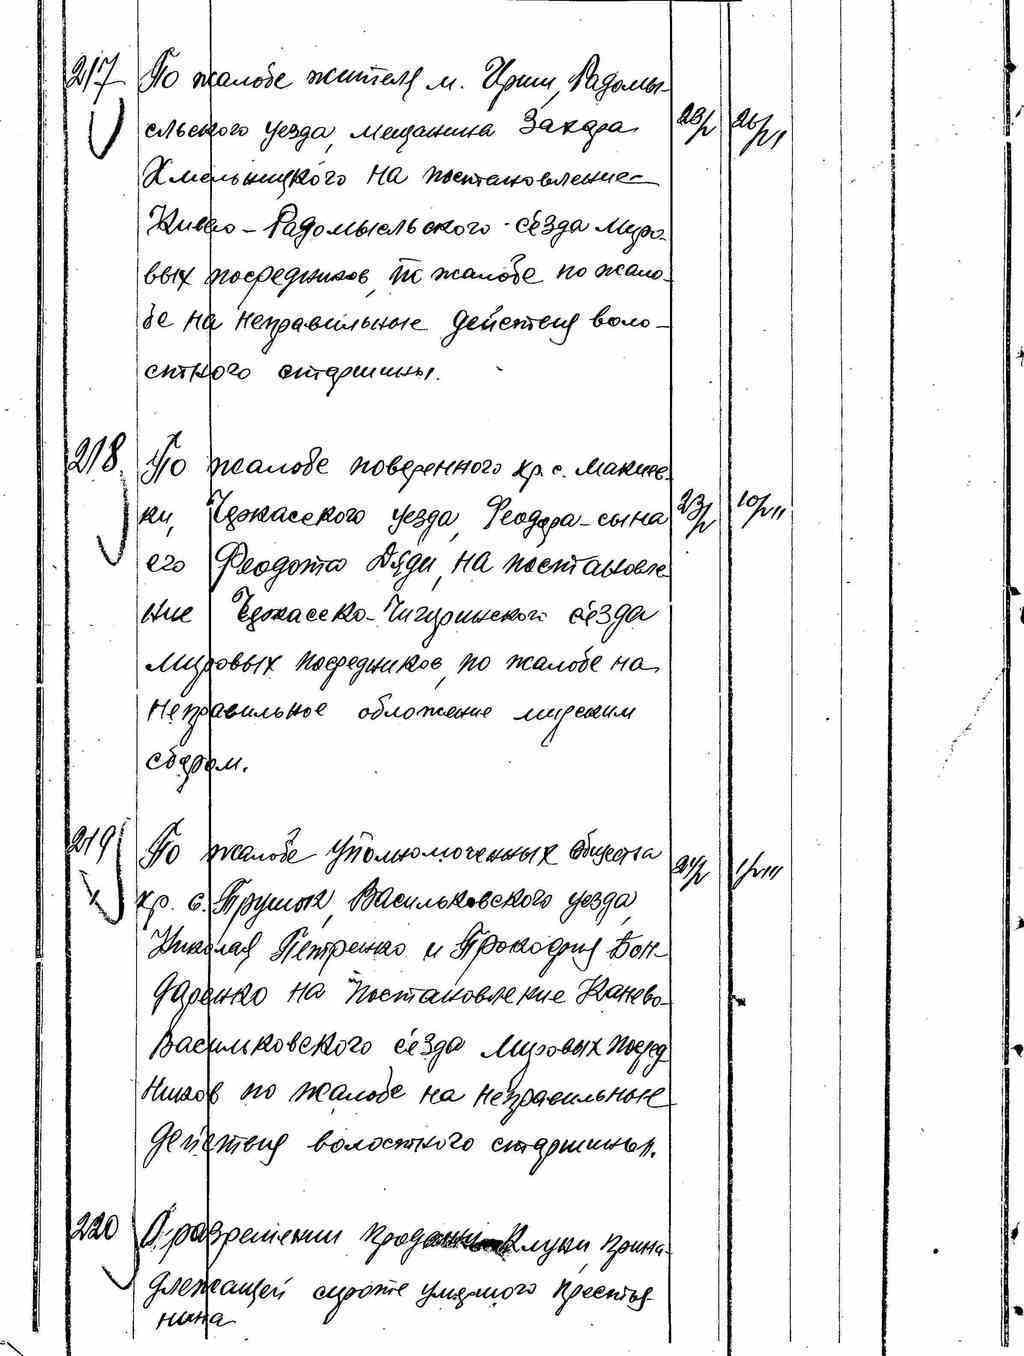 217 По жалобе жителя м. Ирши, Радомы-
сльского уезда, мещанина Захара 23/V 26/VI
Хмельницкого на постановление
Киево-Радомысльского съезда миро-
вых посредников, по жалобе по жало-
бе на неправильные действия воло-
стного старшины.
218. По жалобе поверенного кр. с. Макиев-
ки, Черкасского уезда, Феодора-сына 23/V 10/VII
его Феодота Дяди, на постановле-
ние Черкасско-Чигиринского съезда
мировых посредников, по жалобе на
неправильное обложение мирским
сбором.
219 По жалобе уполномоченных общества
кр. с. Трушок, Васильковского уезда, 24/V 1/VIII
Николая Петренко и Прокофия Бон-
даренко на постановление Канево-
Васильковского съезда мировых посред
ников по жалобе на неправильные
действия волостного старшины.
220 О разрешении продажи клуни прина-
длежащей сироте умершего крестья
нина